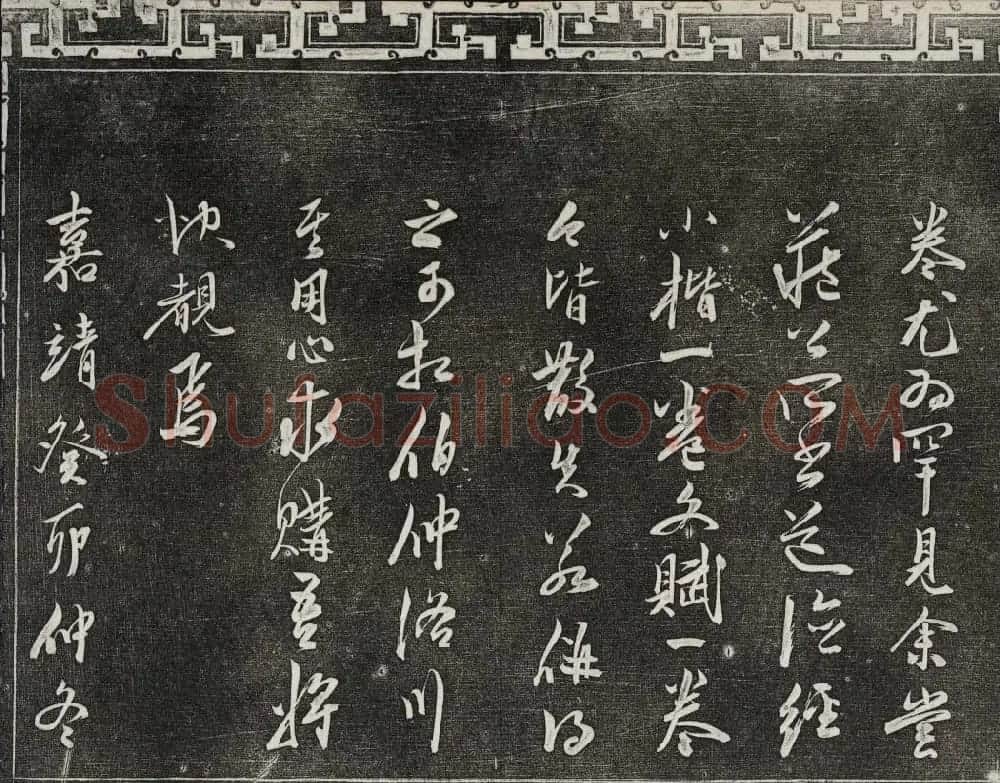 卷尤為罕見余嘗
藏公所書道德經
小楷一卷文賦一卷
今皆散失若併得
之可相伯仲洛川
其用心求購吾將
快覩焉
嘉靖癸卯仲冬
Shufaziliao.COM